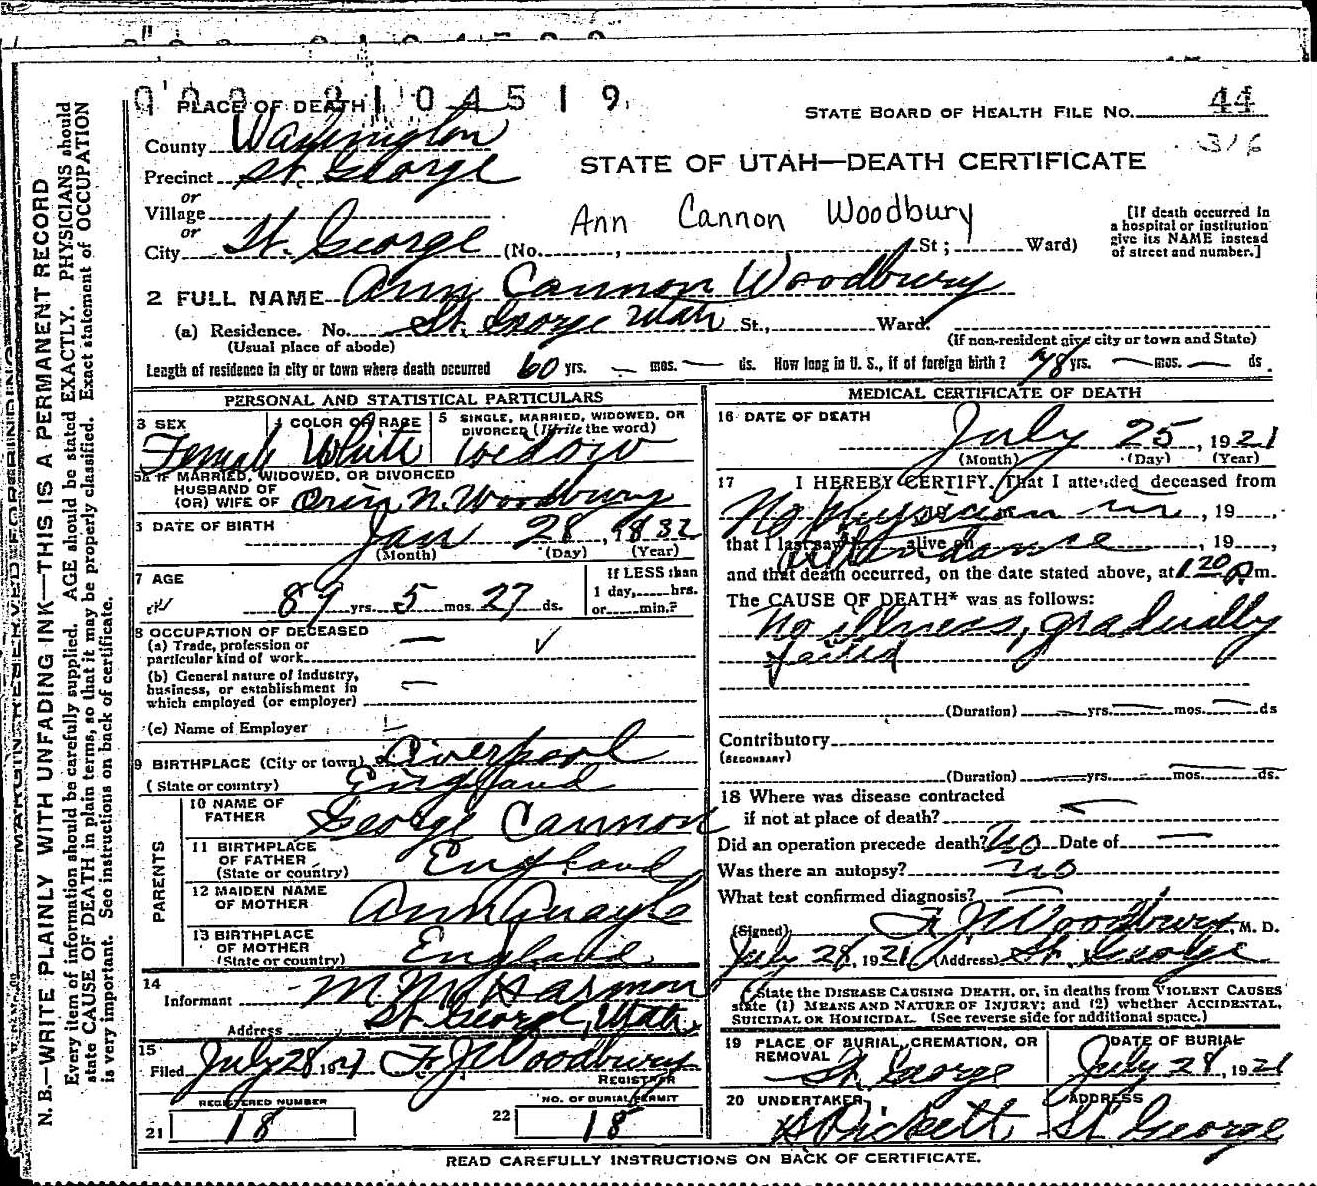 2104519
PLACE OF DEATH
STATE BOARD OF HEALTH FILE No. 44
316
County Washington
Precinct St. George
STATE OF UTAH—DEATH CERTIFICATE
or
Village
or
Ann Cannon Woodbury
City St. George (No. , St; Ward)
[If death occurred in
a hospital or institution
give its NAME instead
of street and number.]
2 FULL NAME Ann Cannon Woodbury
(a) Residence. No. St. George Utah St., Ward.
(Usual place of abode)
(If non-resident give city or town and State)
Length of residence in city or town where death occurred 60 yrs. — mos. — ds. How long in U. S., if of foreign birth? 78 yrs. — mos. — ds.
PERSONAL AND STATISTICAL PARTICULARS
3 SEX Female
4 COLOR OR RACE White
5 SINGLE, MARRIED, WIDOWED, OR
DIVORCED (Write the word)
Widow
5a IF MARRIED, WIDOWED, OR DIVORCED
HUSBAND OF
(OR) WIFE OF Orin N. Woodbury
DATE OF BIRTH Jan 28, 1832
(Month) (Day) (Year)
7 AGE
89 yrs. 5 mos. 27 ds.
If LESS than
1 day, hrs.
or min.?
8 OCCUPATION OF DECEASED
(a) Trade, profession or
particular kind of work —
(b) General nature of industry,
business, or establishment in
which employed (or employer) —
(c) Name of Employer
9 BIRTHPLACE (City or town) Liverpool
(State or country) England
PARENTS
10 NAME OF
FATHER George Cannon
11 BIRTHPLACE
OF FATHER
(State or country) England
12 MAIDEN NAME
OF MOTHER Ann Quayle
13 BIRTHPLACE
OF MOTHER
(State or country) England
14
Informant M M Harmon
Address St George, Utah
15
Filed July 28 1921 F. J. Woodbury
REGISTRAR
REGISTERED NUMBER
21 18
NO. OF BURIAL PERMIT
22 18
MEDICAL CERTIFICATE OF DEATH
16 DATE OF DEATH
July 25, 1921
(Month) (Day) (Year)
17 I HEREBY CERTIFY, That I attended deceased from
No Physician in , 19
that I last saw h alive on , 19 ,
attendance
and that death occurred, on the date stated above, at 1 20 P m.
The CAUSE OF DEATH* was as follows:
No illness, gradually
failed
(Duration) — yrs. — mos. — ds
Contributory
(SECONDARY)
(Duration) — yrs. — mos. — ds.
18 Where was disease contracted
if not at place of death? —
Did an operation precede death? No Date of —
Was there an autopsy? no
What test confirmed diagnosis? —
(Signed) F. J. Woodbury, M. D.
July 28, 1921 (Address) St. George
*State the DISEASE CAUSING DEATH, or, in deaths from VIOLENT CAUSES
state (1) MEANS AND NATURE OF INJURY; and (2) whether ACCIDENTAL,
SUICIDAL OR HOMICIDAL. (See reverse side for additional space.)
19 PLACE OF BURIAL, CREMATION, OR
REMOVAL St. George
DATE OF BURIAL
July 28, 1921
20 UNDERTAKER
Pickett
ADDRESS
St George
READ CAREFULLY INSTRUCTIONS ON BACK OF CERTIFICATE.
MARGIN RESERVED FOR BINDING
N. B.—WRITE PLAINLY WITH UNFADING INK—THIS IS A PERMANENT RECORD
Every item of information should be carefully supplied. AGE should be stated EXACTLY. PHYSICIANS should
state CAUSE OF DEATH in plain terms, so that it may be properly classified. Exact statement of OCCUPATION
is very important. See instructions on back of certificate.